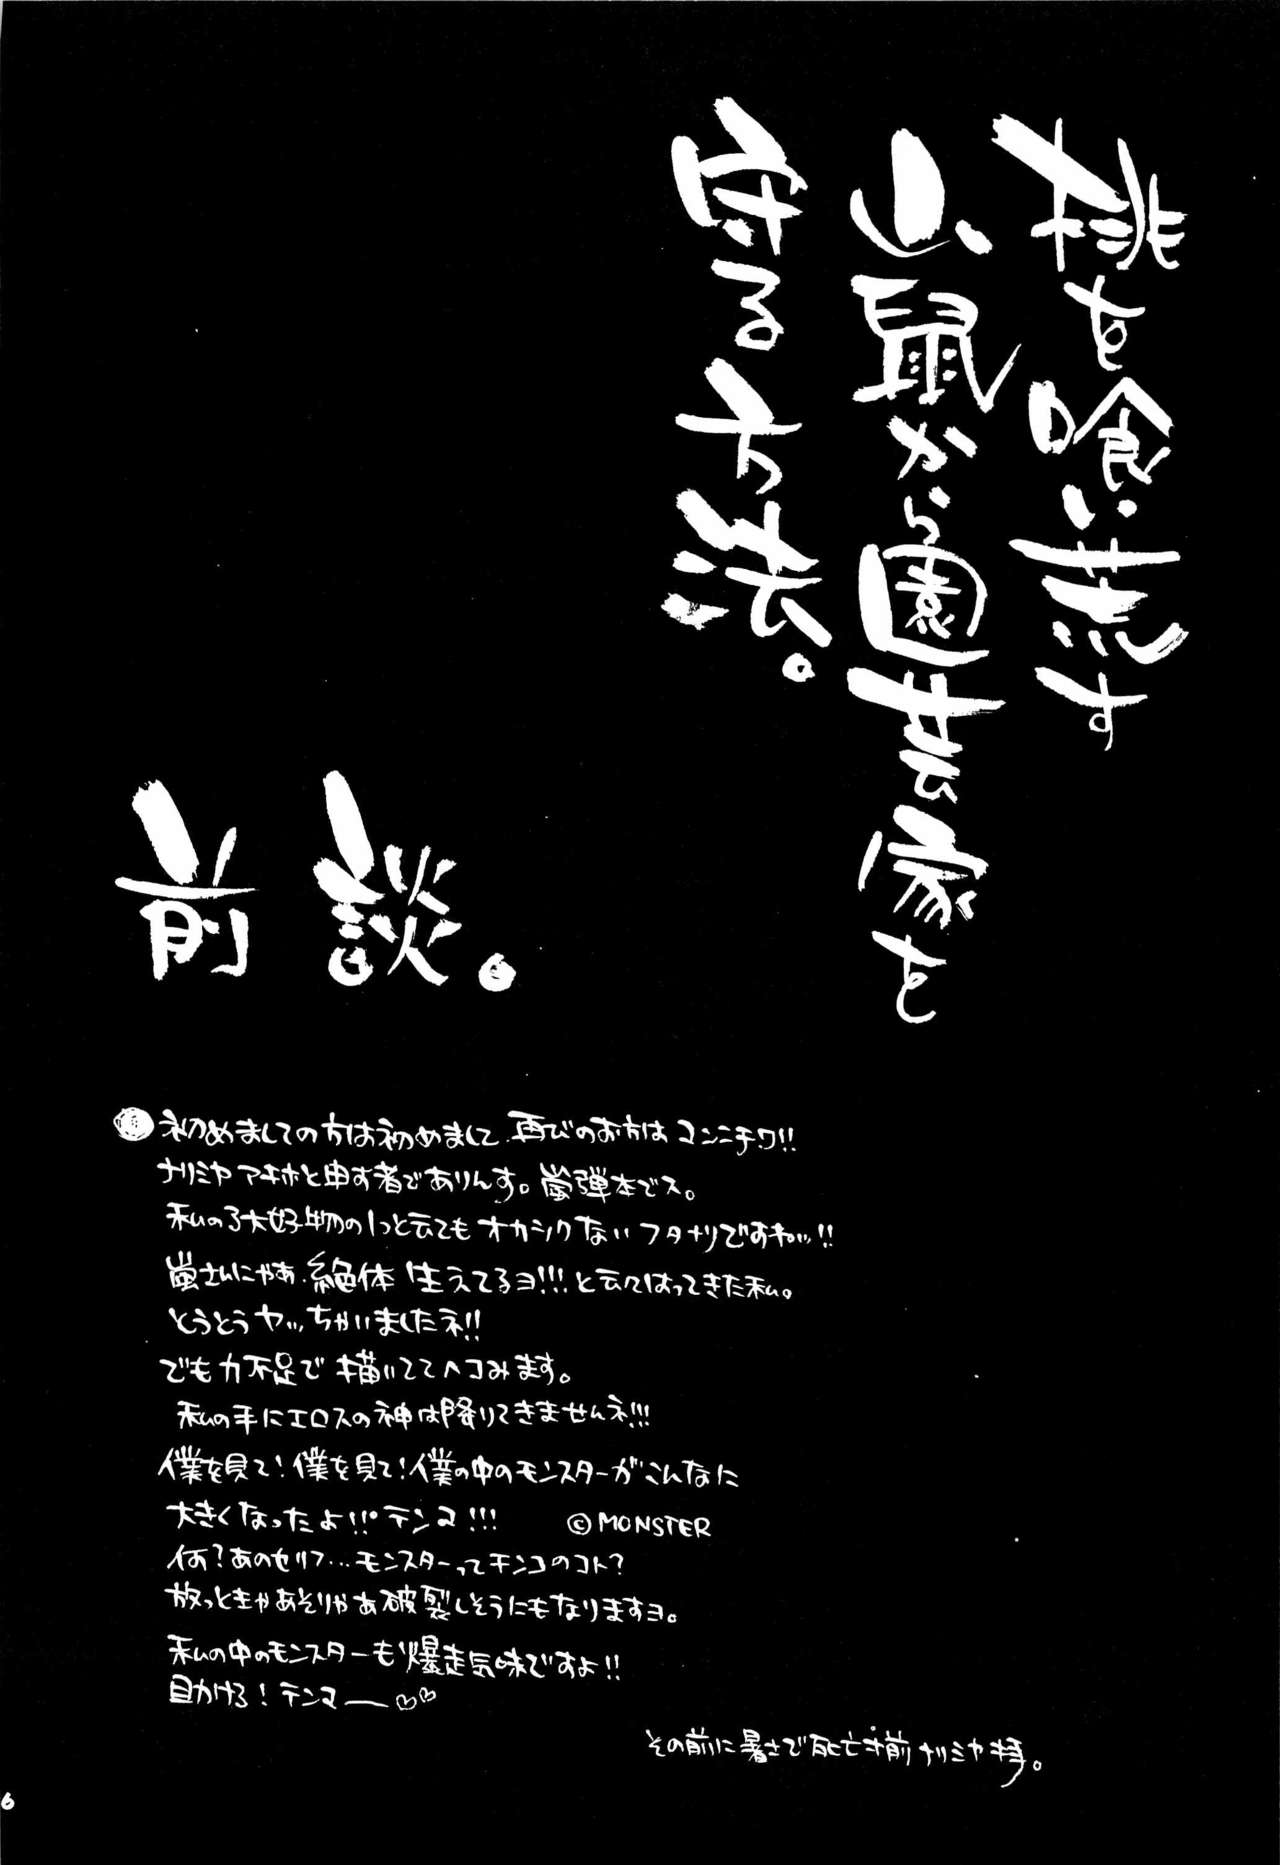 桃を喰い荒す
山鼠から園芸家を
守る方法。
前談。
初めましての方は初めまして、再びのお方はコンニチワ!!
ナリミヤアキホと申す者でありんす。嵐弾本でス。
私の3大好物の1つと云てもオカシクないフタナリですねッ!!
嵐さんにゃあ、絶体 生えてるヨ!!!と云いはってきた私。
とうとうヤッちゃいましたネ!!
でも力不足で描いててヘコみます。
私の手にエロスの神は降りてきませんネ!!!
僕を見て!僕を見て!僕の中のモンスターがこんなに
大きくなったよ!!!テンマ!!! ©MONSTER
何?あのセリフ…モンスターってチンコのコト?
放っときゃあそりゃあ破裂しそうにもなりますヨ。
私の中のモンスターも爆走気味ですよ!!
助けろ!テンマー♡♡
その前に暑さで死亡寸前ナリミヤ拝。
6